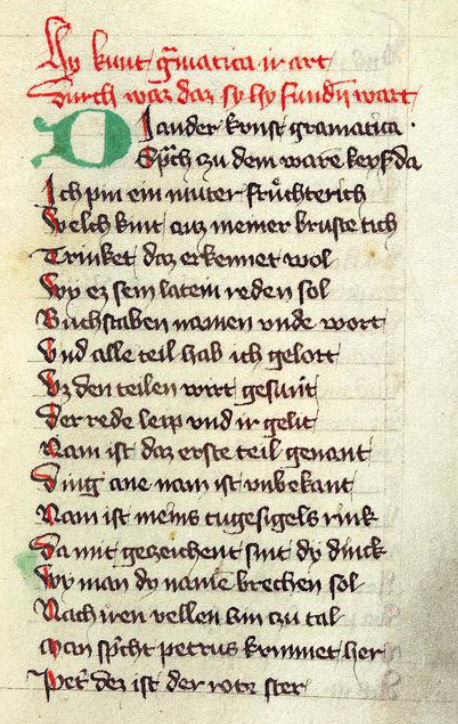 Hy kunt gͣmatica ir art
Durch waz daz sy hy fundē wart
DI ander konst gramatica ·
Spͣch czu dem waren keysˢ da
Ich pin ein muter fruchterich
Welch kint auz meiner bruste tich
Trinket daz erkennet wol
Wy ez sein latein reden sol
Buchstaben namen vnde wort
Vnd alle teil hab ich gelort
Vz den teilen wirt gesunt
Der rede leip vnd ir gelit
Nam ist daz erste teil genant
Ding ane nam ist vnbekant
Nam ist meins tugesigels rink
Da mit gezeichent sint dy dinck
Wy man dy namē brechen sol
Nach iren vellen hin czu tal
Man spͥcht petrus kummet her
Petˢ dez ist der rotz ster